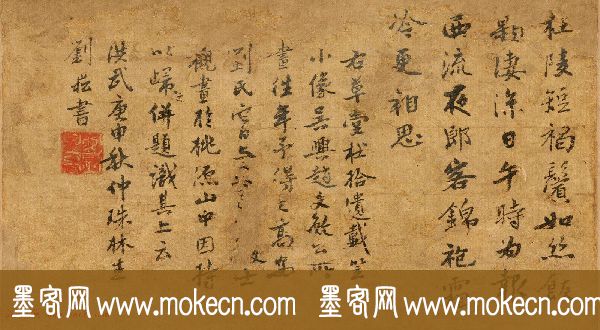 杜陵短褐鬢如絲飯
顆淒涼日午時為報
西流夜郎客錦袍雪
冷更相思
右草堂杜拾遺戴笠
小像吳興趙文敏公所
畫往年予得之高
劉民
觀畫於桃源山中因持
以歸併題識其上云
洪武庚申秋仲珠林生
劉崧書
墨客网 www.mokecn.com 墨客网 www.mokecn.com